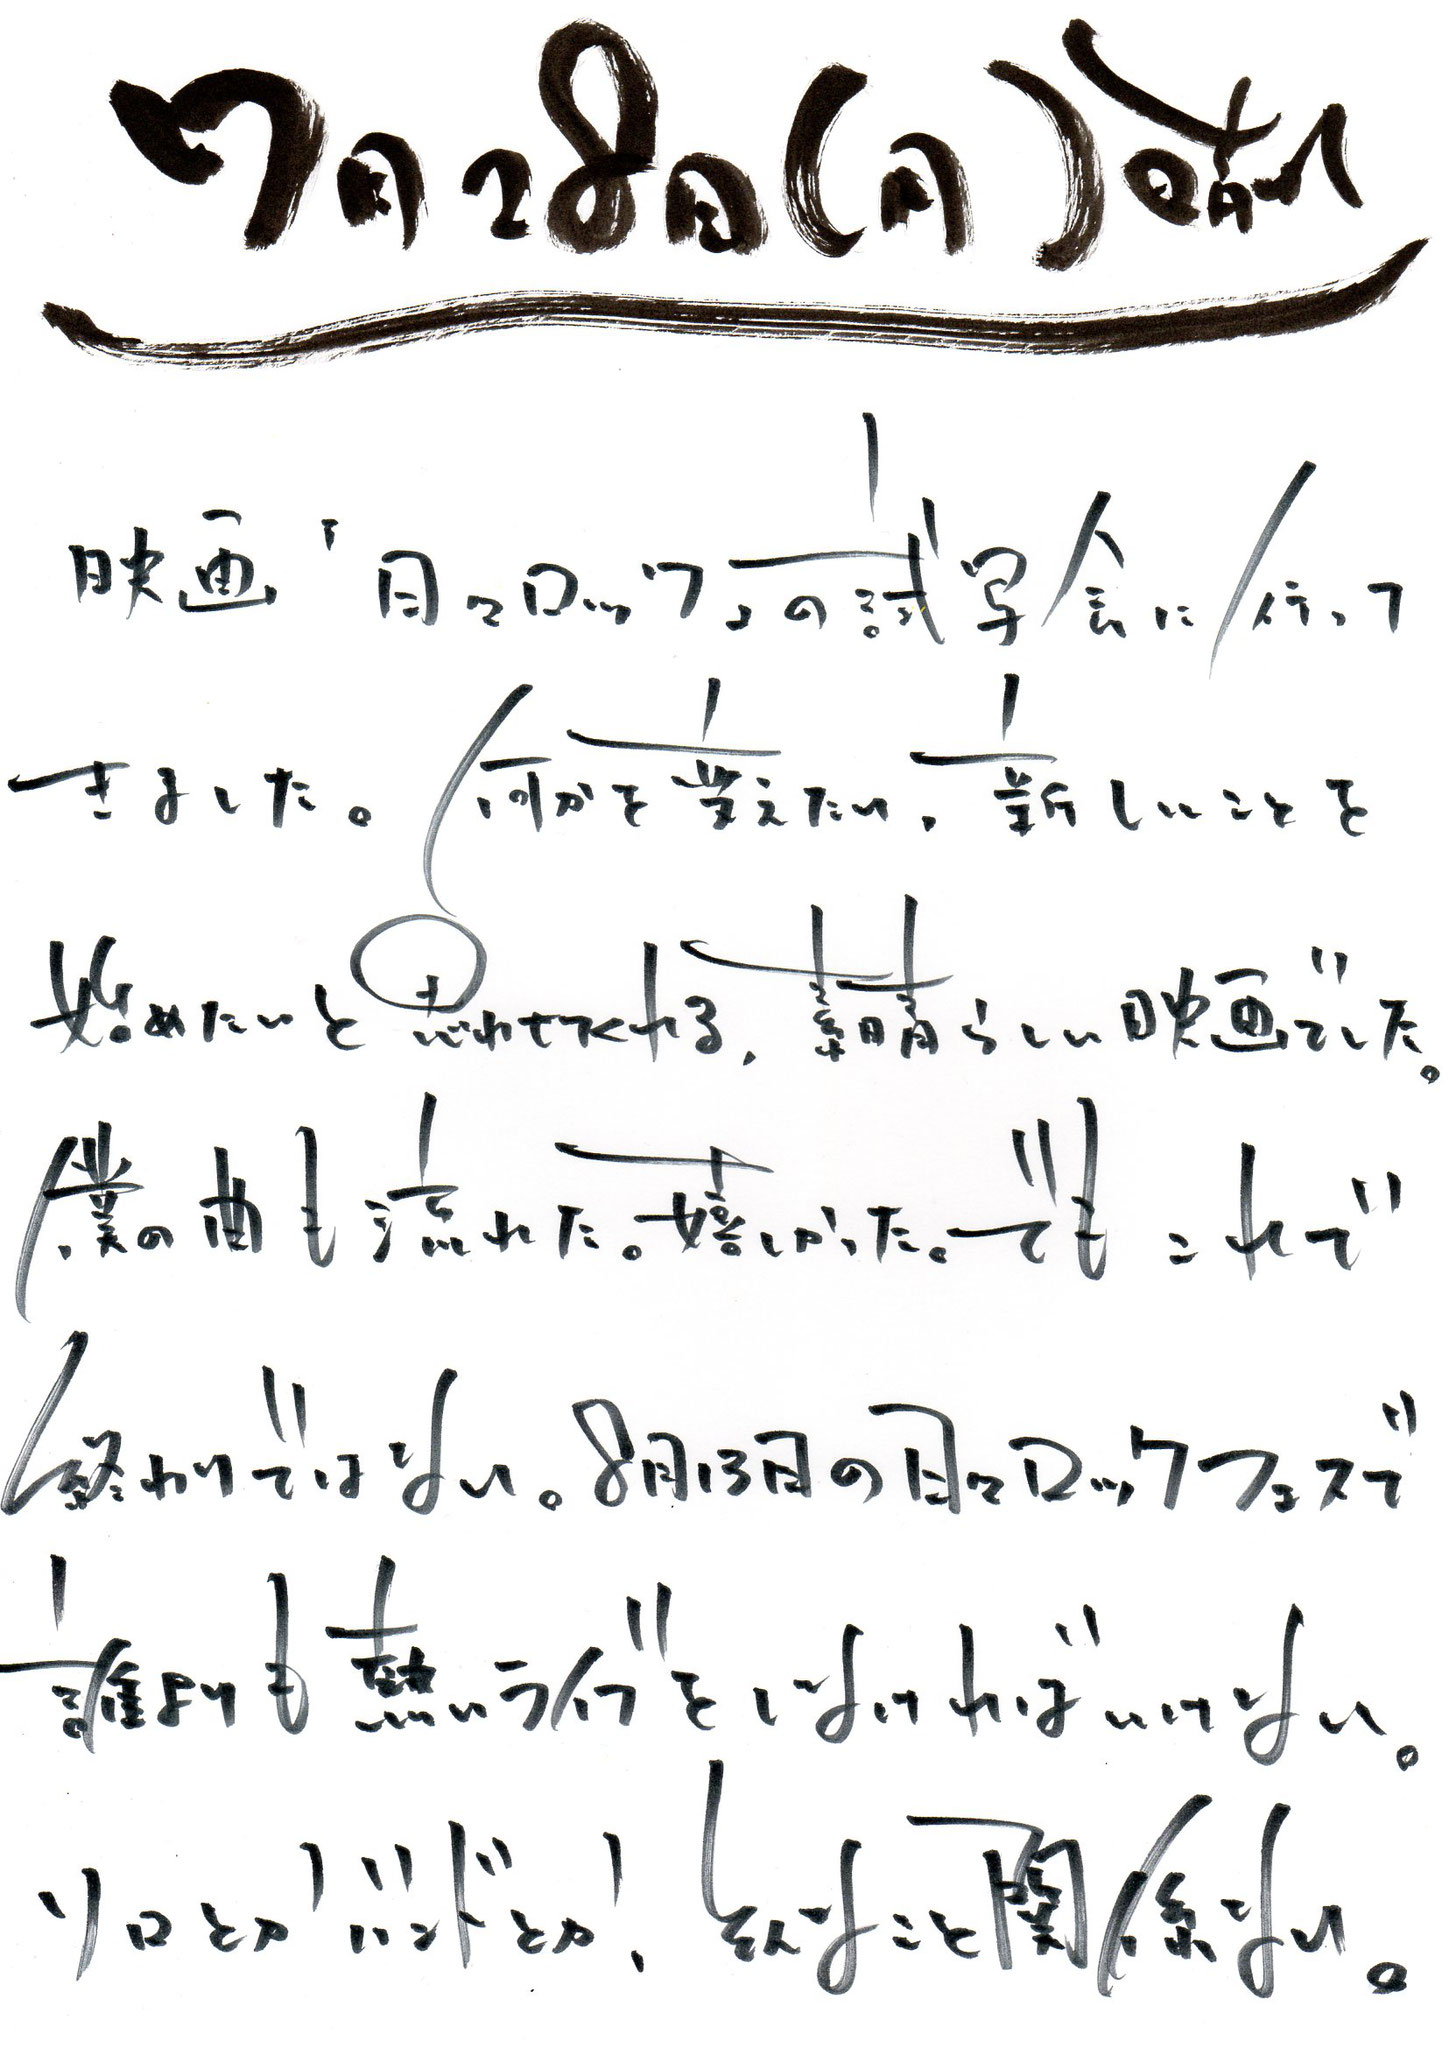 7月28日(月)晴れ
映画「日々ロック」の試写会に行って
きました。何かを覚えたい、新しいことを
始めたいと思わせてくれる、素晴らしい映画でした。
僕の曲も流れた。嬉しかった。でもこれで
終わりではない。8月13日の日々ロックフェスで
誰よりも熱いライブをしなければいけない。
ソロとかバンドとか、そんなこと関係ない。